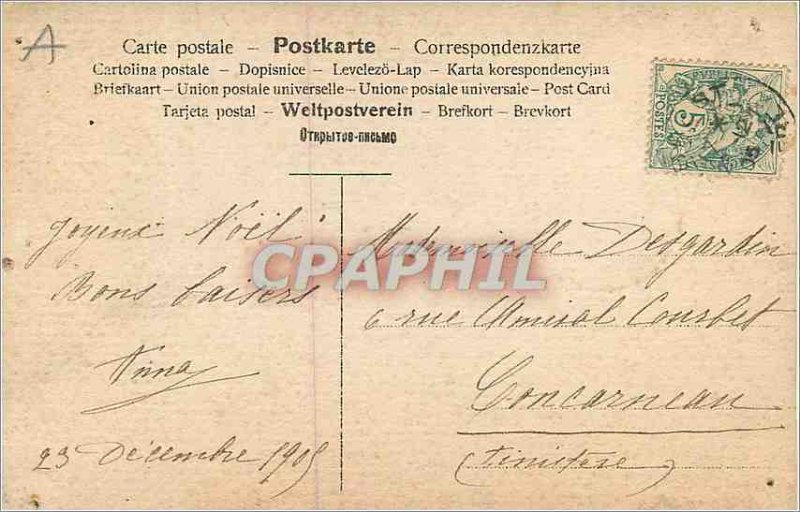 A
Carte postale – Postkarte – Correspondenzkarte
Cartolina postale – Dopisnice – Levelező-Lap – Karta korespondencyjna
Briefkaart – Union postale universelle – Unione postale universale – Post Card
Tarjeta postal – Weltpostverein – Brefkort – Brevkort
Открытое-письмо
POSTES
5
Joyeux Noël
Bons baisers
Anna
23 Décembre 1905
Mademoiselle Desgardin
6 rue Amiral Courbet
Concarneau
(Finistère)
CPAPHIL